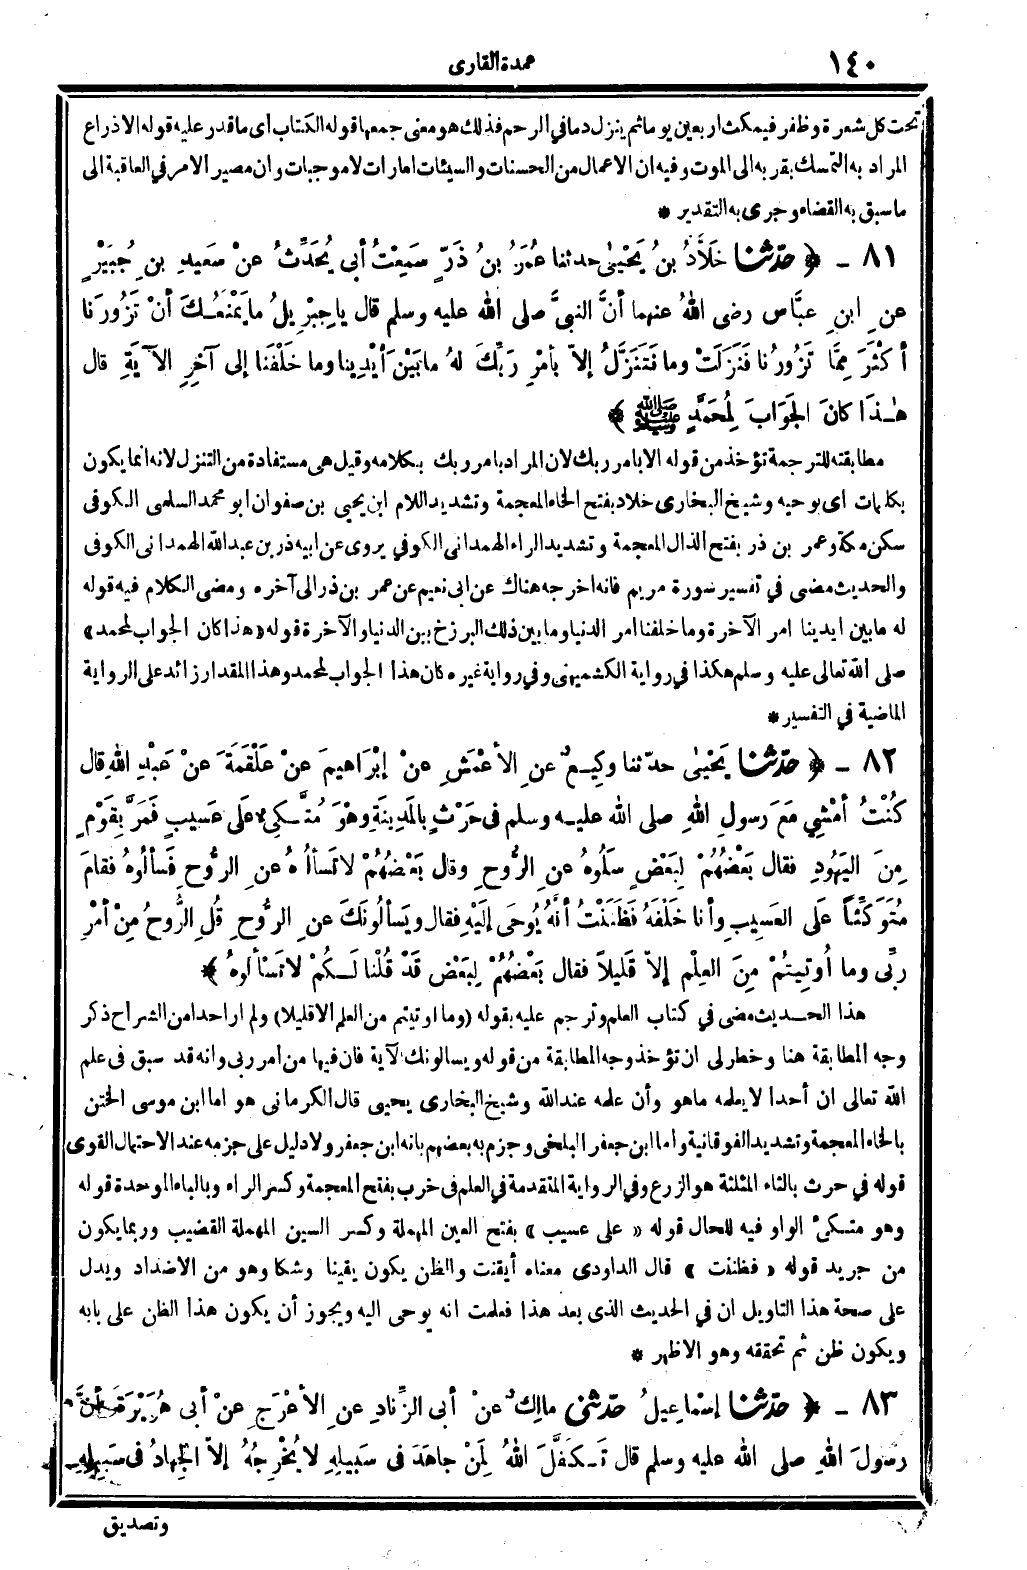 ١٤٠
عمدة القارى
تحت كل شعرة وظفر فيمكث اربعين يوما ثم ينزل دما في الرحم فذلك هو معنى جمعها قوله الكتاب أى ما قدر عليه قوله الا ذراع
المراد به التمسك بقربه الى الموت وفيه ان الاعمال من الحسنات والسيئات امارات لا موجبات وان مصير الامر في العاقبة الى
ما سبق به القضاء وجرى به التقدير *
٨١ ـ ﴿ حدّثنا خَلَّادُ بنُ يَحْيىٰ حدثنا عُمَرُ بنُ ذَرٍّ سَمِعْتُ أبي يُحَدِّثُ عنْ سَعِيدِ بنِ جُبَيْرٍ
عنِ ابنِ عبَّاسٍ رضى اللهُ عنهما أنَّ النبىَّ صلى الله عليه وسلم قال يا جِبْرِيلُ ما يَمْنَعُكَ أنْ تَزُورَنا
أكْثَرَ مِمَّا تَزُورُنا فَنَزَلَتْ وما نَتَنَزَّلُ إلاّ بأمْرِ رَبِّكَ لهُ ما بَيْنَ أيْدِينا وما خَلْفَنا إلى آخِرِ الآيَةِ قال
هٰذَا كانَ الجَوَابَ لِمُحَمَّدٍ ﷺ ﴾
مطابقته للترجمة تؤخذ من قوله الا بامر ربك لان المراد بامر ربك بكلامه وقيل هى مستفادة من التنزل لانه انما يكون
بكلمات اى بوحيه وشيخ البخارى خلاد بفتح الخاء المعجمة وتشديد اللام ابن يحيى بن صفوان ابو محمد السلمى الكوفى
سكن مكة وعمر بن ذر بفتح الذال المعجمة وتشديد الراء الهمدانى الكوفي يروى عن ابيه ذر بن عبد الله الهمدانى الكوفى
والحديث مضى في تفسير سورة مريم فانه اخرجه هناك عن ابى نعيم عن عمر بن ذر الى آخره ومضى الكلام فيه قوله
له ما بين ايدينا امر الآخرة وما خلفنا امر الدنيا وما بين ذلك البرزخ بين الدنيا والآخرة قوله «هذا كان الجواب لمحمد»
صلى الله تعالى عليه وسلم هكذا في رواية الكشميهنى وفي رواية غيره كان هذا الجواب لمحمد وهذا المقدار زائد على الرواية
الماضية في التفسير *
٨٢ ـ ﴿ حدّثنا يَحْيىٰ حدّثنا وكِيعٌ عنِ الأعْمَشِ عنْ إبْرَاهِيمَ عنْ عَلْقَمَةَ عنْ عَبْدِ اللهِ قال
كُنْتُ أمْشِي مَعَ رسولِ اللهِ صلى الله عليه وسلم فى حَرْثٍ بالمَدِينَةِ وهْوَ مُتَّكِىءٌ علَى عَسِيبٍ فَمَرَّ بِقَوْمٍ
مِنَ اليَهُودِ فقال بَعْضُهُمْ لِبَعْضٍ سَلُوهُ عنِ الرُّوحِ وقال بَعْضُهُمْ لا تَسألُوهُ عنِ الرُّوحِ فَسألُوهُ فقامَ
مُتَوَكِّئاً علَى العَسِيبِ وأنا خَلْفَهُ فَظَنَنْتُ أنَّهُ يُوحَى إلَيْهِ فقال ويَسألُونَكَ عنِ الرُّوحِ قُلِ الرُّوحُ مِنْ أمْرِ
ربِّى وما أُوتِيتُمْ مِنَ العِلْمِ إلاّ قَلِيلاً فقال بَعْضُهُمْ لِبَعْضٍ قَدْ قُلْنا لَكُمْ لا تَسْألوهُ ﴾
هذا الحديث مضى في كتاب العلم وترجم عليه بقوله (وما اوتيتم من العلم الا قليلا) ولم ار احدا من الشراح ذكر
وجه المطابقة هنا وخطر لى ان تؤخذ وجه المطابقة من قوله ويسالونك الآية فان فيها من امر ربى وانه قد سبق فى علم
الله تعالى ان أحدا لا يعلمه ماهو وأن علمه عند الله وشيخ البخارى يحيى قال الكرمانى هو اما ابن موسى الختن
بالخاء المعجمة وتشديد الفوقانية واما ابن جعفر البلخى وجزم به بعضهم بانه ابن جعفر ولا دليل على جزمه عند الاحتمال القوى
قوله في حرث بالثاء المثلثة هو الزرع وفي الرواية المتقدمة في العلم فى خرب بفتح المعجمة وكسر الراء وبالباء الموحدة قوله
وهو متكىء الواو فيه للحال قوله « على عسيب » بفتح العين المهملة وكسر السين المهملة القضيب وربما يكون
من جريد قوله « فظننت » قال الداودى معناه أيقنت والظن يكون يقينا وشكا وهو من الاضداد ويدل
على صحة هذا التاويل ان في الحديث الذى بعد هذا فعلمت انه يوحى اليه ويجوز أن يكون هذا الظن على بابه
ويكون ظن ثم تحققه وهو الاظهر *
٨٣ ـ ﴿ حدّثنا إسْماعِيلُ حدّثنى مالِكٌ عنْ أبى الزِّنادِ عنِ الأعْرَجِ عنْ أبى هُرَيْرَةَ أنَّ
رسولَ اللهِ صلى الله عليه وسلم قال تَكَفَّلَ اللهُ لِمَنْ جاهَدَ فى سَبِيلِهِ لا يُخْرِجُهُ إلاّ الجِهادُ فى سَبِيلِهِ
وتصديق